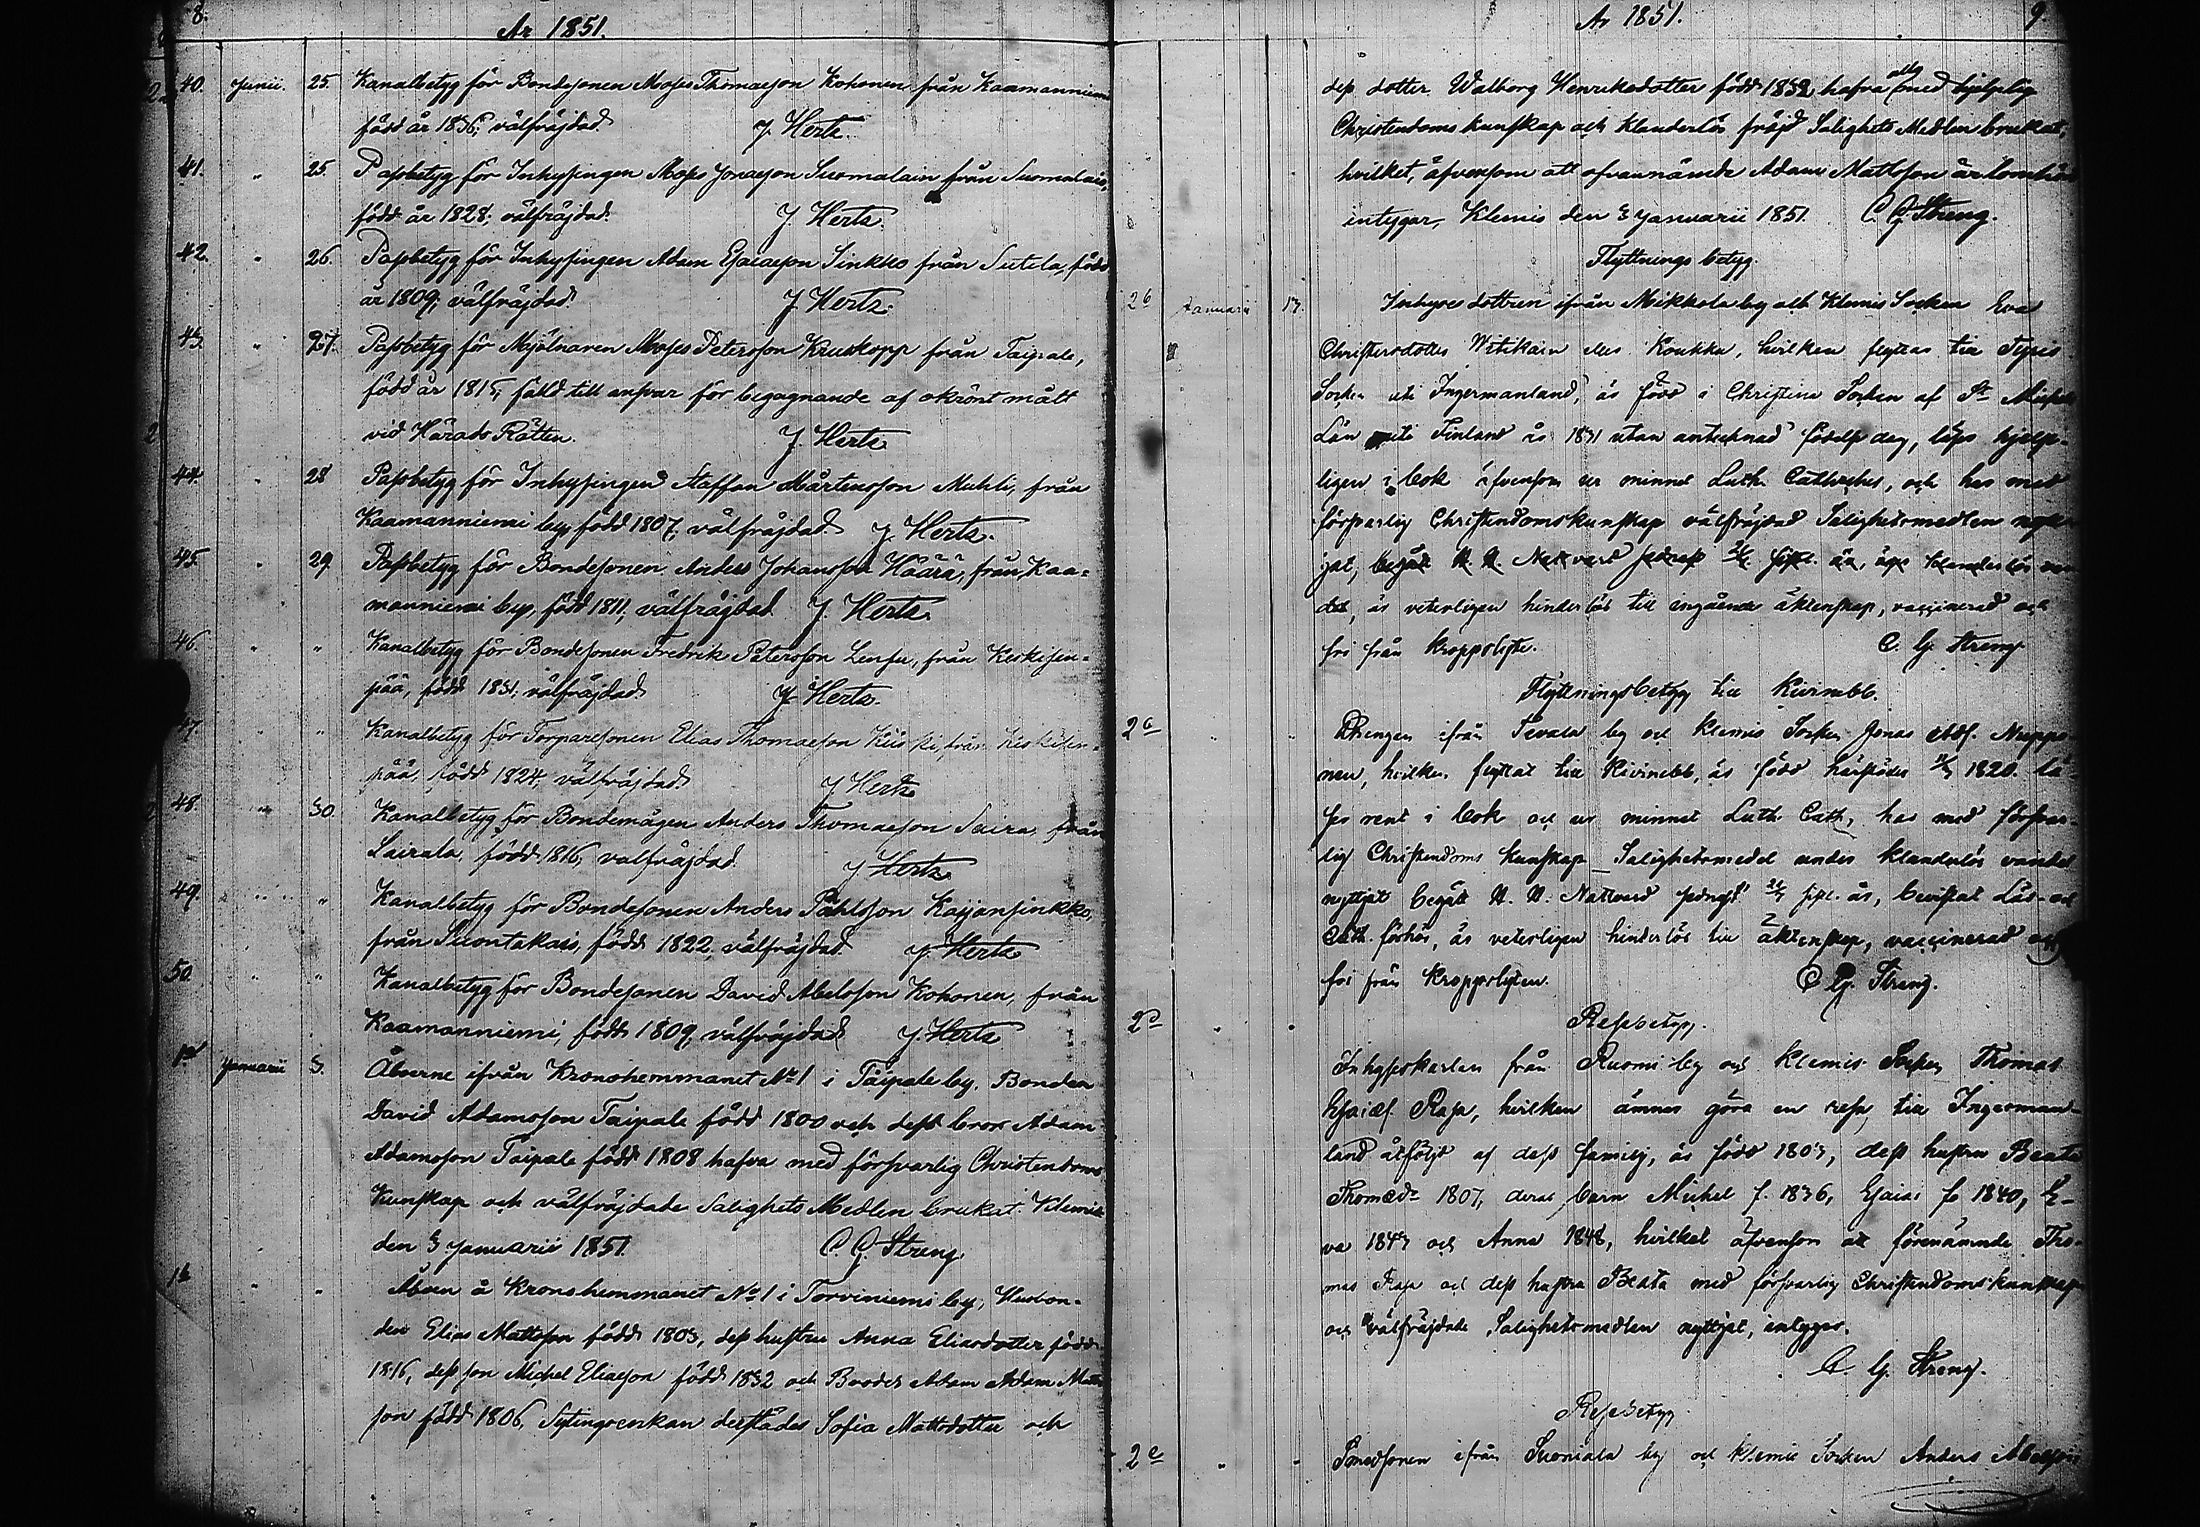 8.
År 1851.
40. Junii. 25. Kanalbetyg för Bondesonen Moses Thomasson Kohonen från Kaamanniemi
född år 1836; välfräjdad. J. Hertz.
41. " 25. Passbetyg för Inhysingen Moses Jonasson Suomalain från Suomalais,
född år 1828; välfräjdad. J. Hertz.
42. " 26. Passbetyg för Inhysingen Adam Esaiasson Sinkko från Sutela, född
år 1809; välfräjdad. J. Hertz.
43. " 27. Passbetyg för Mjölnaren Moses Petersson Kruskopp från Taipale,
född år 1815, fälld till ansvar för begagnande af okrönt mått
vid Härads Rätten. J. Hertz
44. " 28 Passbetyg för Inhysingen Staffan Mårtensson Muhli, från
Kaamanniemi by, född 1807, välfräjdad. J. Hertz.
45. " 29. Passbetyg för Bondesonen Anders Johansson Häärä, från Kaa-
manniemi by, född 1811, välfräjdad J. Hertz.
46. " " Kanalbetyg för Bondesonen Fredrik Petersson Lensu, från Keskisen-
pää, född 1831; välfräjdad J. Hertz.
47. " Kanalbetyg för Torparesonen Elias Thomasson Kiiski, från Keskisen-
pää, född 1824, välfräjdad J. Hertz
48. " 30. Kanalbetyg för Bondemågen Anders Thomasson Saira, från
Sairala, född 1816, välfräjdad. J. Hertz
49. " " Kanalbetyg för Bondesonen Anders Påhlsson Kaijansinkko,
från Suontakais, född 1822, välfräjdad. J. Hertz
50. " " Kanalbetyg för Bondesonen David Abelsson Kohonen, från
Kaamanniemi, född 1809, välfräjdad J. Hertz
1a Januarii 3. Åboerne ifrån Kronohemmanet No 1 i Taipale by, Bonden
David Adamsson Taipale född 1800 och dess bror Adam
Adamsson Taipale född 1808 hafva med försvarlig Christendoms
Kunskap och välfräjdade Salighets Medlen brukat. Klemis
den 3 Januarii 1851. C. G. Streng
1b " " Åboen å Kronohemmanet No 1 i Torviniemi by, Husbon-
den Elias Mattsson född 1803, dess hustru Anna Eliasdotter född
1816, dess son Michel Eliasson född 1832 och Broder Adam Adam Matts
son född 1806, Sytingsenkan derstädes Sofia Mattsdotter och
År 1851. 9.
dess dotter Walborg Henriksdotter född 1832, hafva alla med hjelplig
Christendoms kunskap och klanderlös fräjd Salighets Medlen brukat;
hvilket, äfvensom att ofvannämde Adam Mattsson är
intygar, Klemis den 3 Januarii 1851. C. G. Streng.
Flyttnings betyg
2b Januarii 13. Inhyses dottren ifrån Mikkola by och Klemis Socken Eva
Christersdotter Vitikain eller Koukku, hvilken flyttar till Tyris
Socken uti Ingermanland, är född i Christina Socken af St Michels
Län uti Finland år 1831 utan antecknad födelsedag, läser hjelp-
ligen i bok äfvensom ur minnet Luth. Catheches, och har med
försvarlig Christendomskunskap välfräjdad Salighetsmedlen nytt-
jat, begått H. H. Nattvard sednast sistl. år, äger klanderlös van
del, är veterligen hinderlös till ingående äktenskap, vaccinerad och
fri från kroppslyte. C. G. Streng
Flyttningsbetyg till Kivinebb.
2c " " Drengen ifrån Tervala by och Klemis Socken Jonas Abdf. Nuppo-
nen, hvilken flyttat till Kivinebb, är född härstädes 1820. lä-
ser rent i bok och ur minnet Luth. Cath., har med försvar-
lig Christendoms kunskap Salighetsmedel under klanderlös vandel
nyttjat begått H. H. Nattvard sednast sistl. år, bevistat Läs- och
Cath. förhör, är veterligen hinderlös till äktenskap, vaccinerad och
fri från kroppslyten. C. G. Streng.
Resebetyg.
2d " " Inhyseskarlen från Ruomi by och Klemis Socken Thomas
Esaiæs. Rasa, hvilken ämnar göra en resa till Ingerman-
land åtföljd af dess familj, är född 1803, dess hustru Beata
Thomædr 1807, deras barn Michel f. 1836, Esaias f. 1840, E-
va 1843 och Anna 1848, hvilket äfvensom att förenämnde Tho-
mas Rasa och dess hustru Beata med försvarlig Christendomskunskap
och välfräjdade Salighetsmedlen nyttjat, intygar.
C. G. Streng.
Resebetyg
2e " " Smedsonen ifrån Suoniala by och Klemis Socken Anders Abelsson